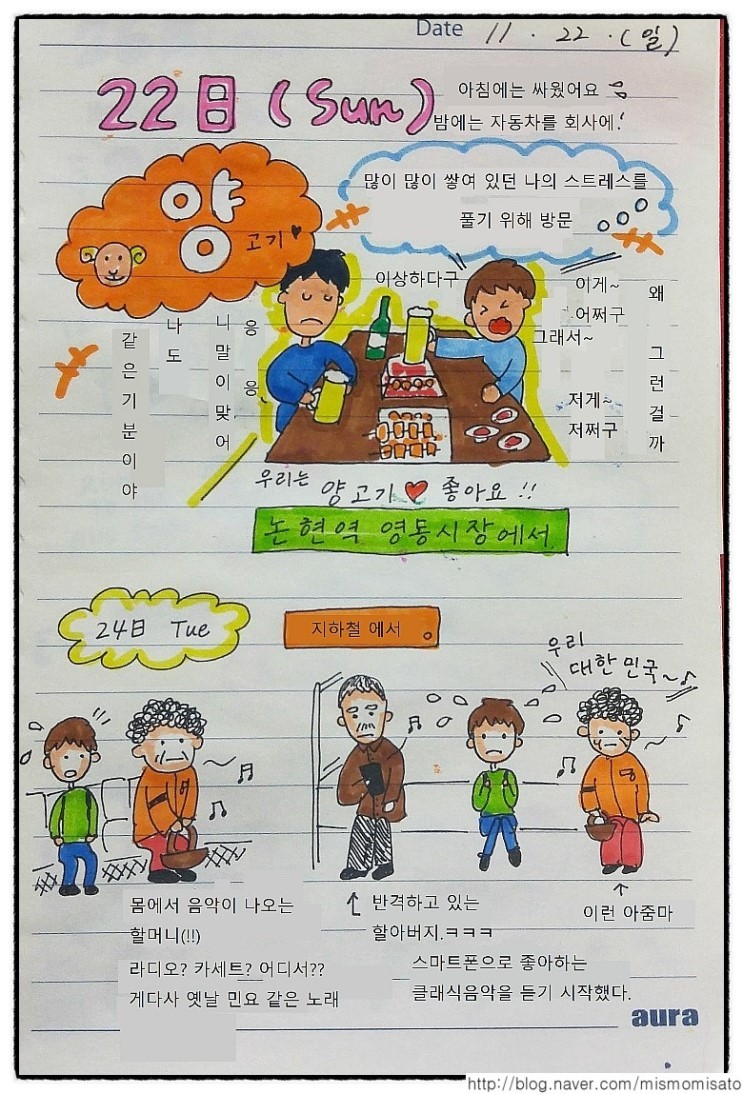 Date 11 . 22 . (일)
22日 (Sun)
아침에는 싸웠어요
밤에는 자동차를 회사에!
양 고기
많이 많이 쌓여 있던 나의 스트레스를
풀기 위해 방문
이상하다구
이게~
어쩌구
그래서~
저게~
저쩌구
왜 그런걸까
응 응
니말이맞어
나도
같은기분이야
우리는 양고기 ♥ 좋아요 !!
논현역 영동시장에서
24日 Tue
지하철 에서
우리
대한민국~♪
몸에서 음악이 나오는
할머니(!!)
라디오? 카세트? 어디서??
게다사 옛날 민요 같은 노래
반격하고 있는
할아버지.ㅋㅋㅋ
스마트폰으로 좋아하는
클래식음악을 듣기 시작했다.
이런 아줌마
aura
http://blog.naver.com/mismomisato